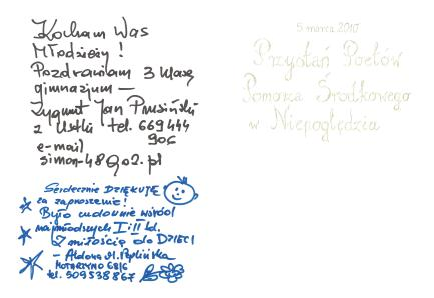 Kocham Was
Młodzieży!
Pozdrawiam 3 klasę
gimnazjum —
Zygmunt Jan Prusiński
z Ustki tel. 669 444
906
e-mail
simon-48@o2.pl
Serdecznie DZIĘKUJĘ
za zaproszenie!
Było cudownie wśród
najmłodszych I i II kl.
Z miłością do DZIECI
- Aldona M. Peplińska
KOTARZYNO 68/6
tel. 509538867
5 marca 2010
Przystań Poetów
Pomorza Środkowego
w Niepoględziu